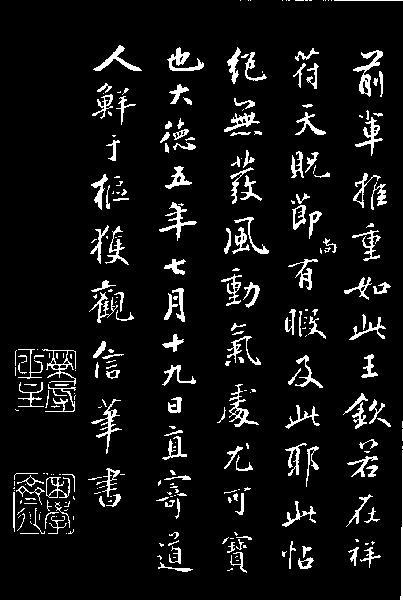 前輩推重如此王欽若在祥
符天貺節尚有暇及此耶此帖
絕無發風動氣處尤可寶
也大德五年七月十九日直寄道
人鮮于樞獲觀信筆書
困學齋